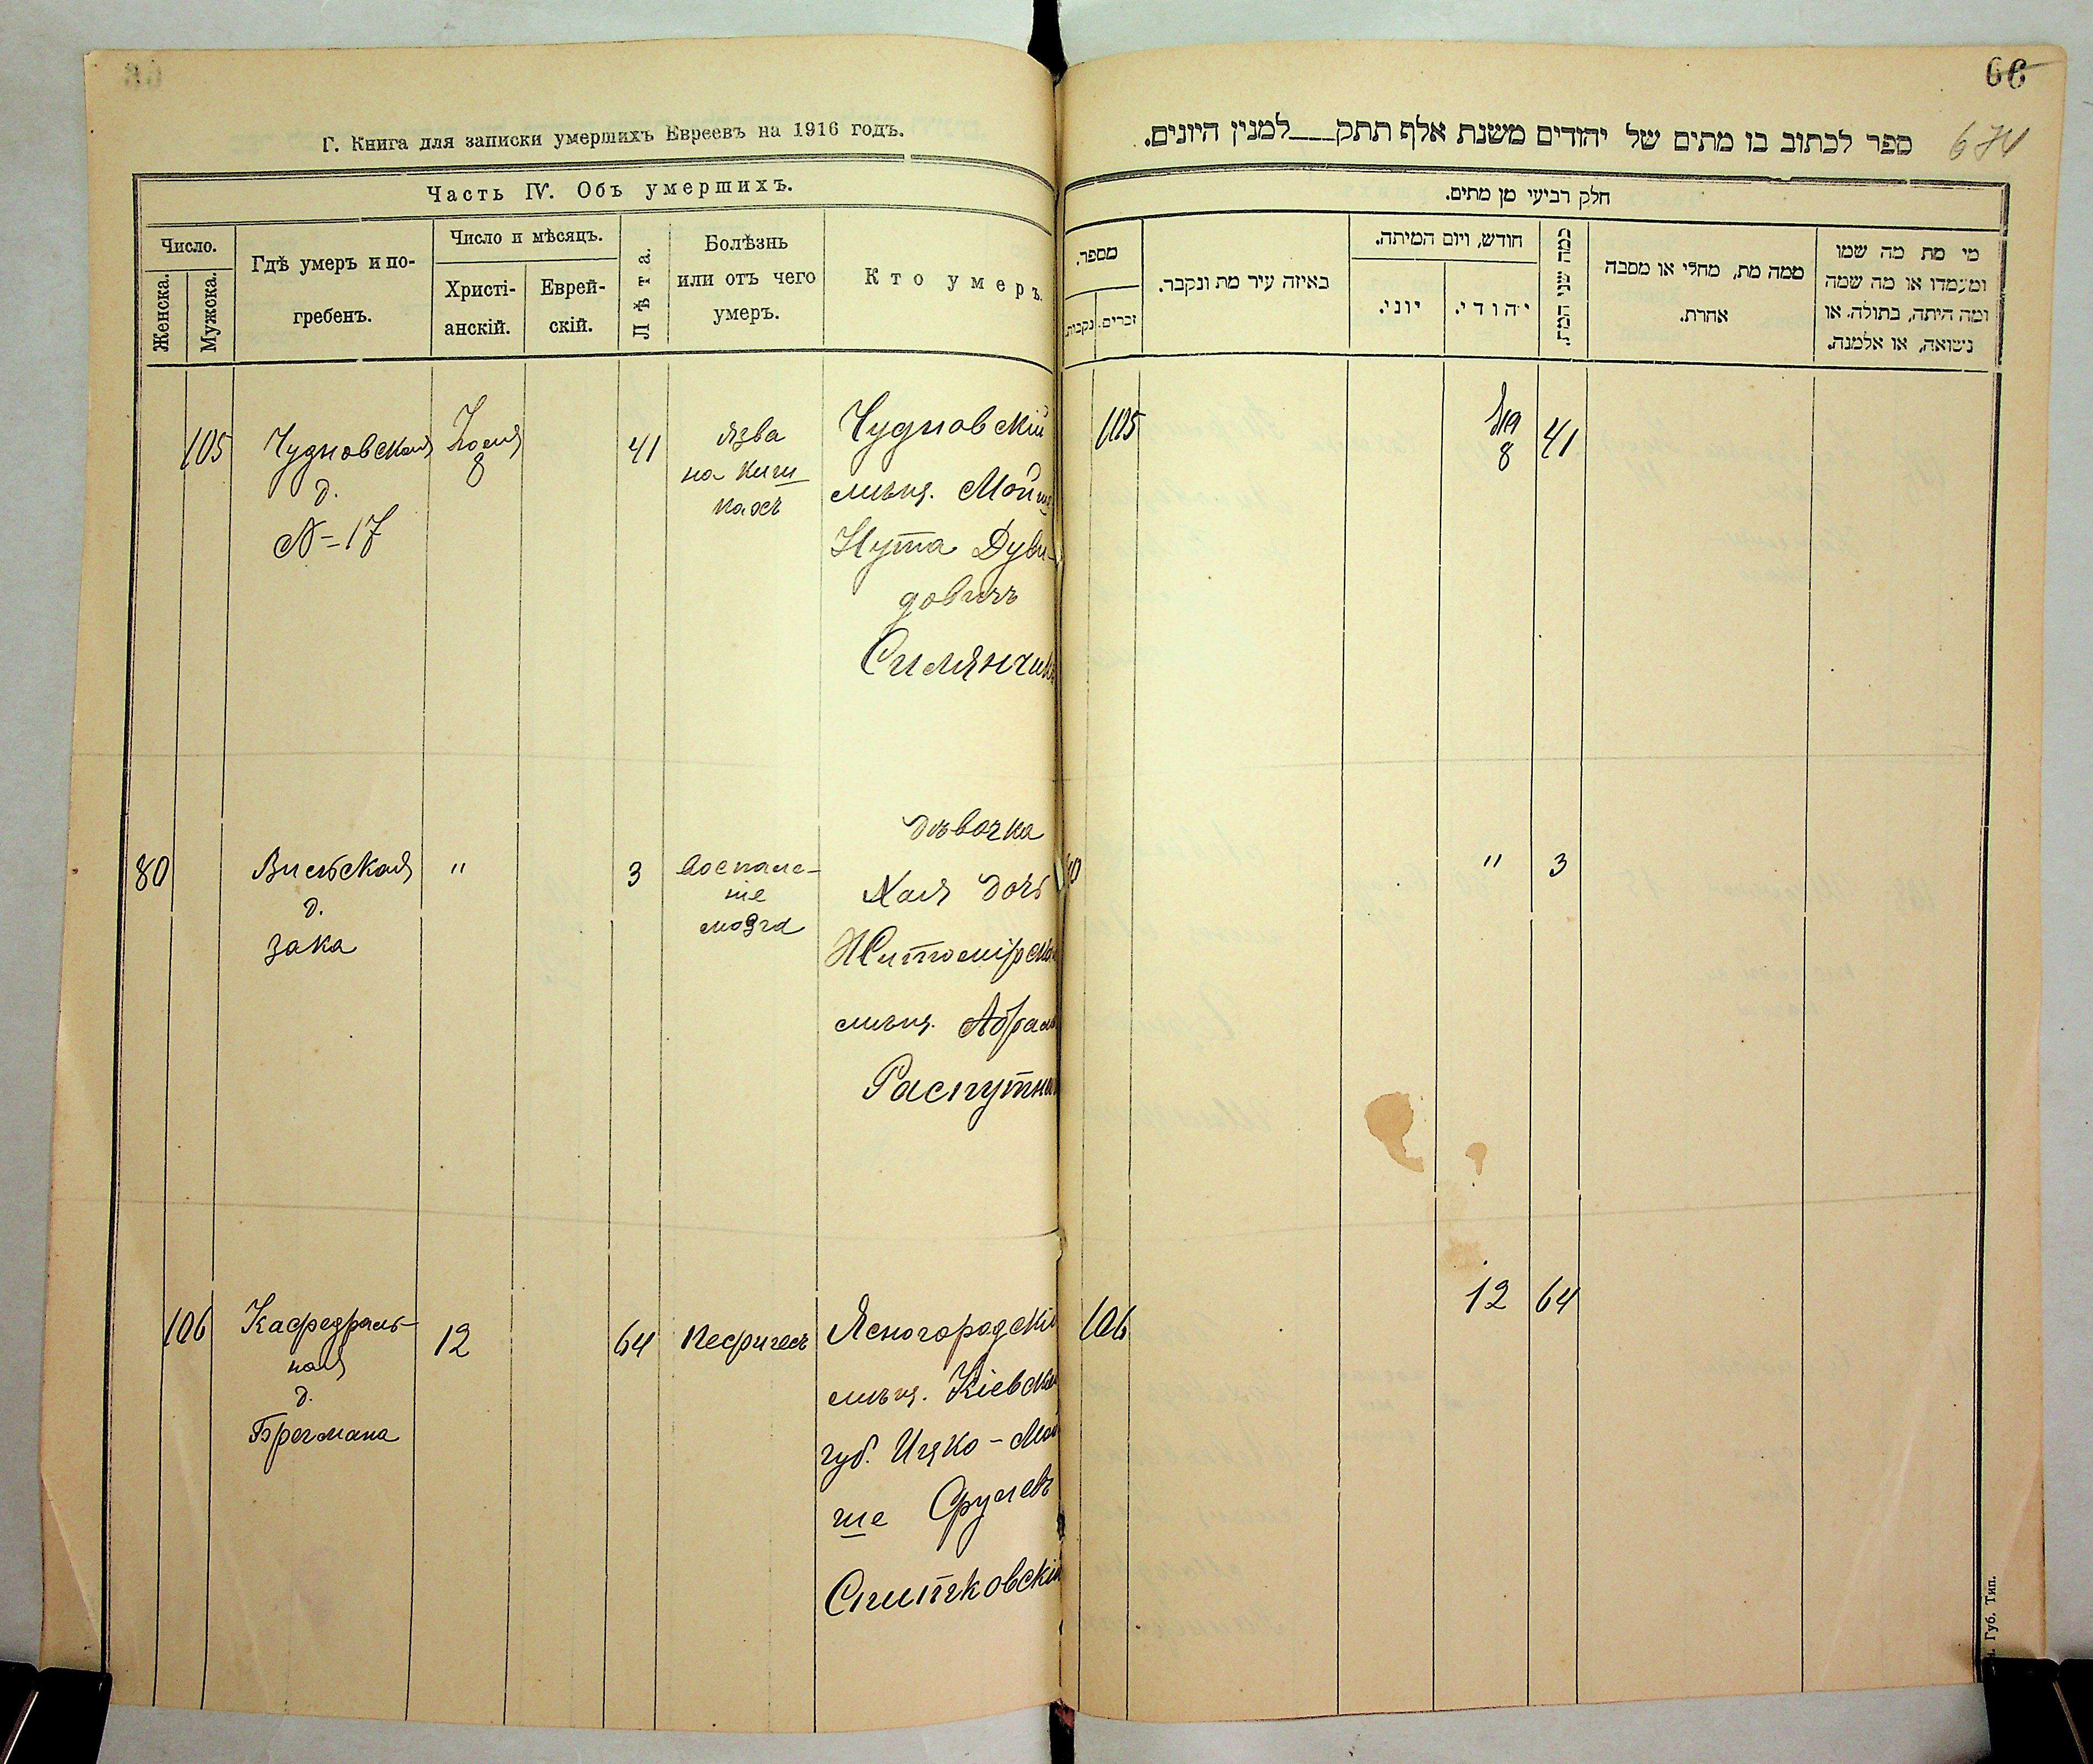 Г. Книга для записки умершихъ Евреевъ на 1916 годъ.
Часть IV. Объ умершихъ.
Число.
Женска.
Мужска.
Гдѣ умеръ и по-
гребенъ.
Число и мѣсяцъ.
Христі-
анскій.
Еврей-
скій.
Лѣта.
Болѣзнь
или отъ чего
умеръ.
Кто умеръ.
105
Чудновская
д.
N=17
Іюля
8
41
язва
на киш
кахъ
Чудновскій
мѣщ. Мойше
Нута Дуви-
довичъ
Симянчикъ
80
Вильская
д.
Зака
"
3
воспале-
ніе
мозга
дѣвочка
Хая дочь
Житомірска
мѣщ. Абрам
Распутни
106
Кафедраль-
ная
д.
Брегмана
12
64
Нефритъ
Ясногородскі
мѣщ. Кіевско
губ. Ицко-Мой
ше Срулевъ
Спичковскій
66
674
ספר לכתוב בו מתים של יהודים משנת אלף תתק___למנין היונים.
חלק רביעי מן מתים.
מספר.
זכרים.
נקבות.
באיזה עיר מת ונקבר.
חודש, ויום המיתה.
יוני.
יהודי.
כמה שני המת.
ממה מת, מחלי או מסבה
אחרת.
מי מת מה שמו
ומעמדו או מה שמה
ומה היתה, בתולה, או
נשואה, או אלמנה.
105
8
41
"
3
106
12
64
Губ. Тип.